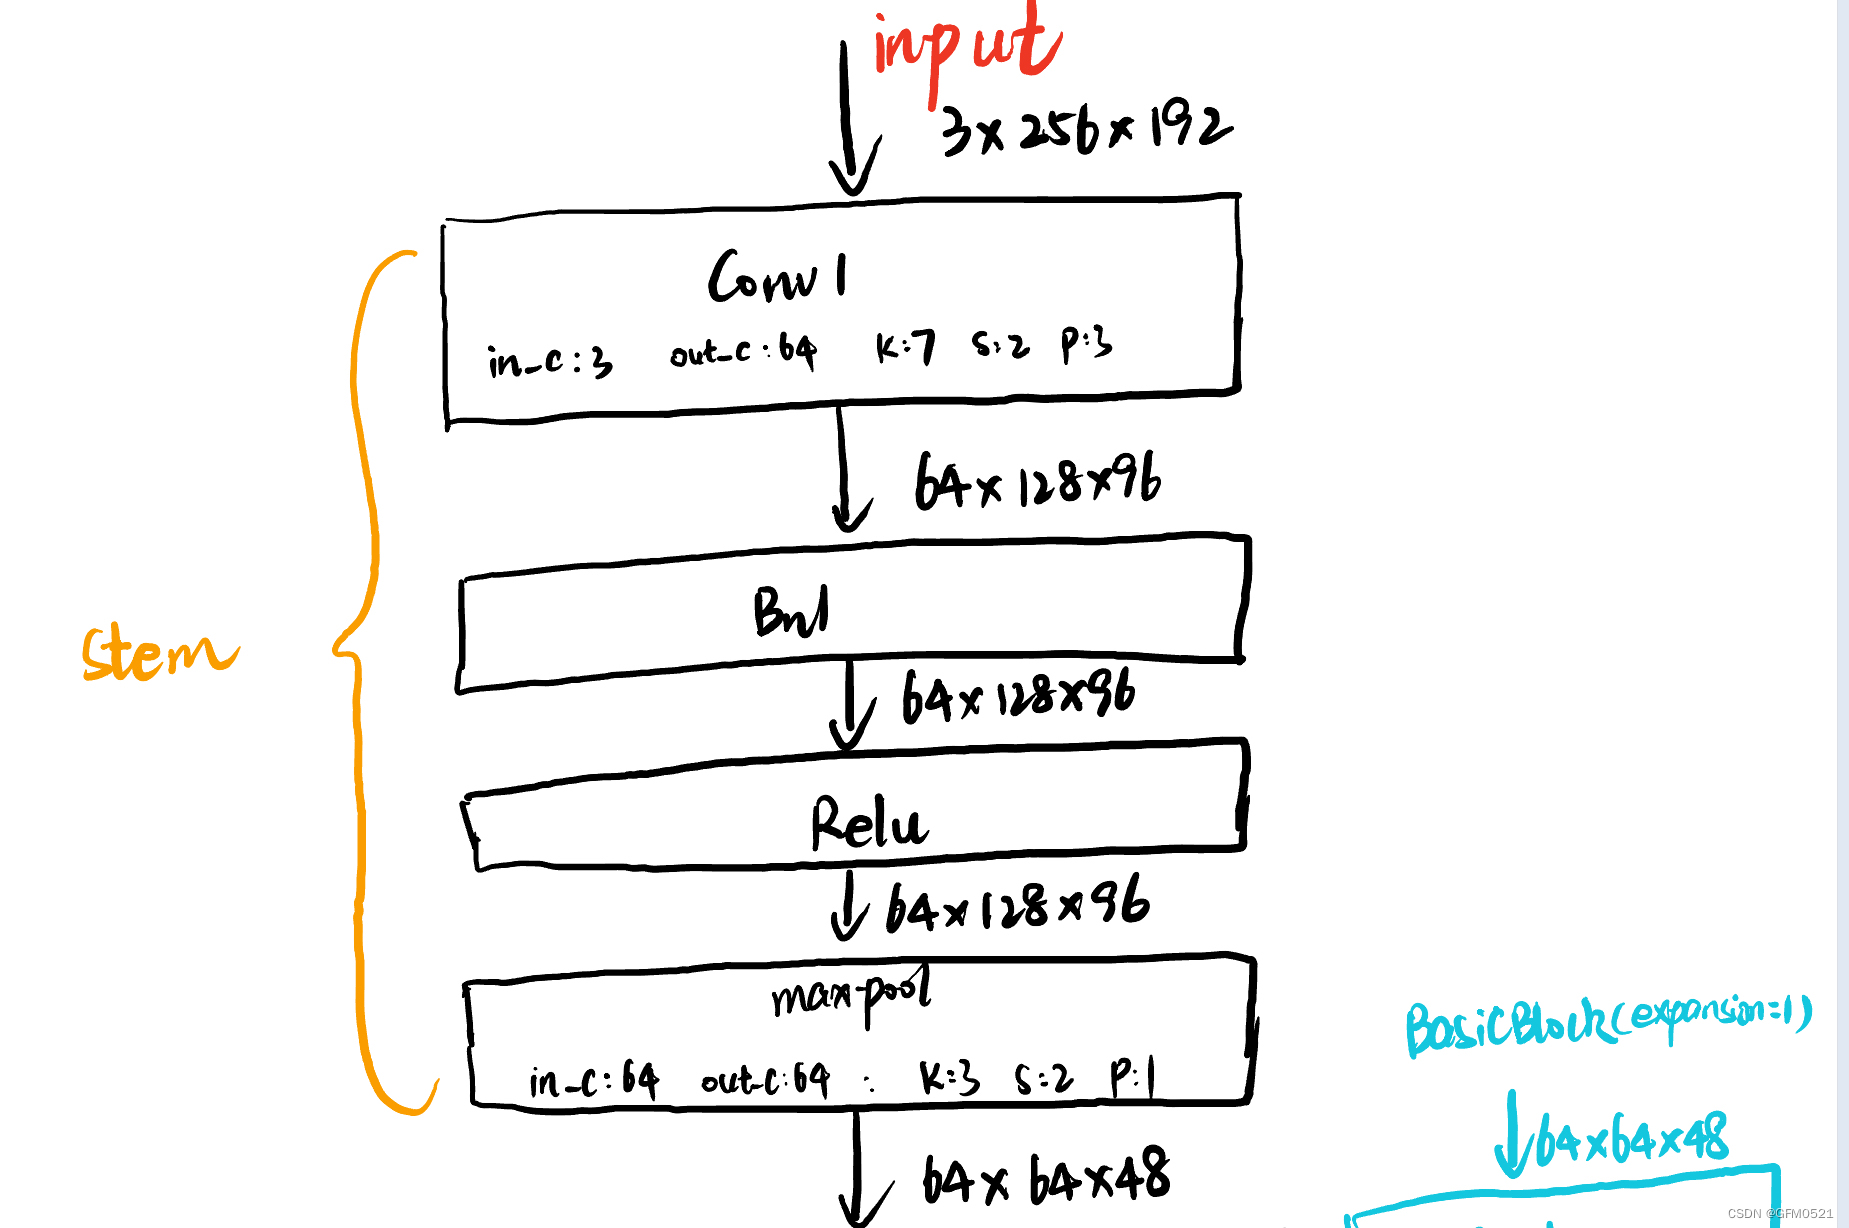 input
3×256×192
Conv1
in_c:3 out_c:64 K:7 S:2 P:3
64×128×96
Bn1
64×128×96
Stem
Relu
64×128×96
maxpool
in_c:64 out_c:64 K:3 S:2 P:1
64×64×48
BasicBlock(expansion=1)
64×64×48
CSDN @GFM0521